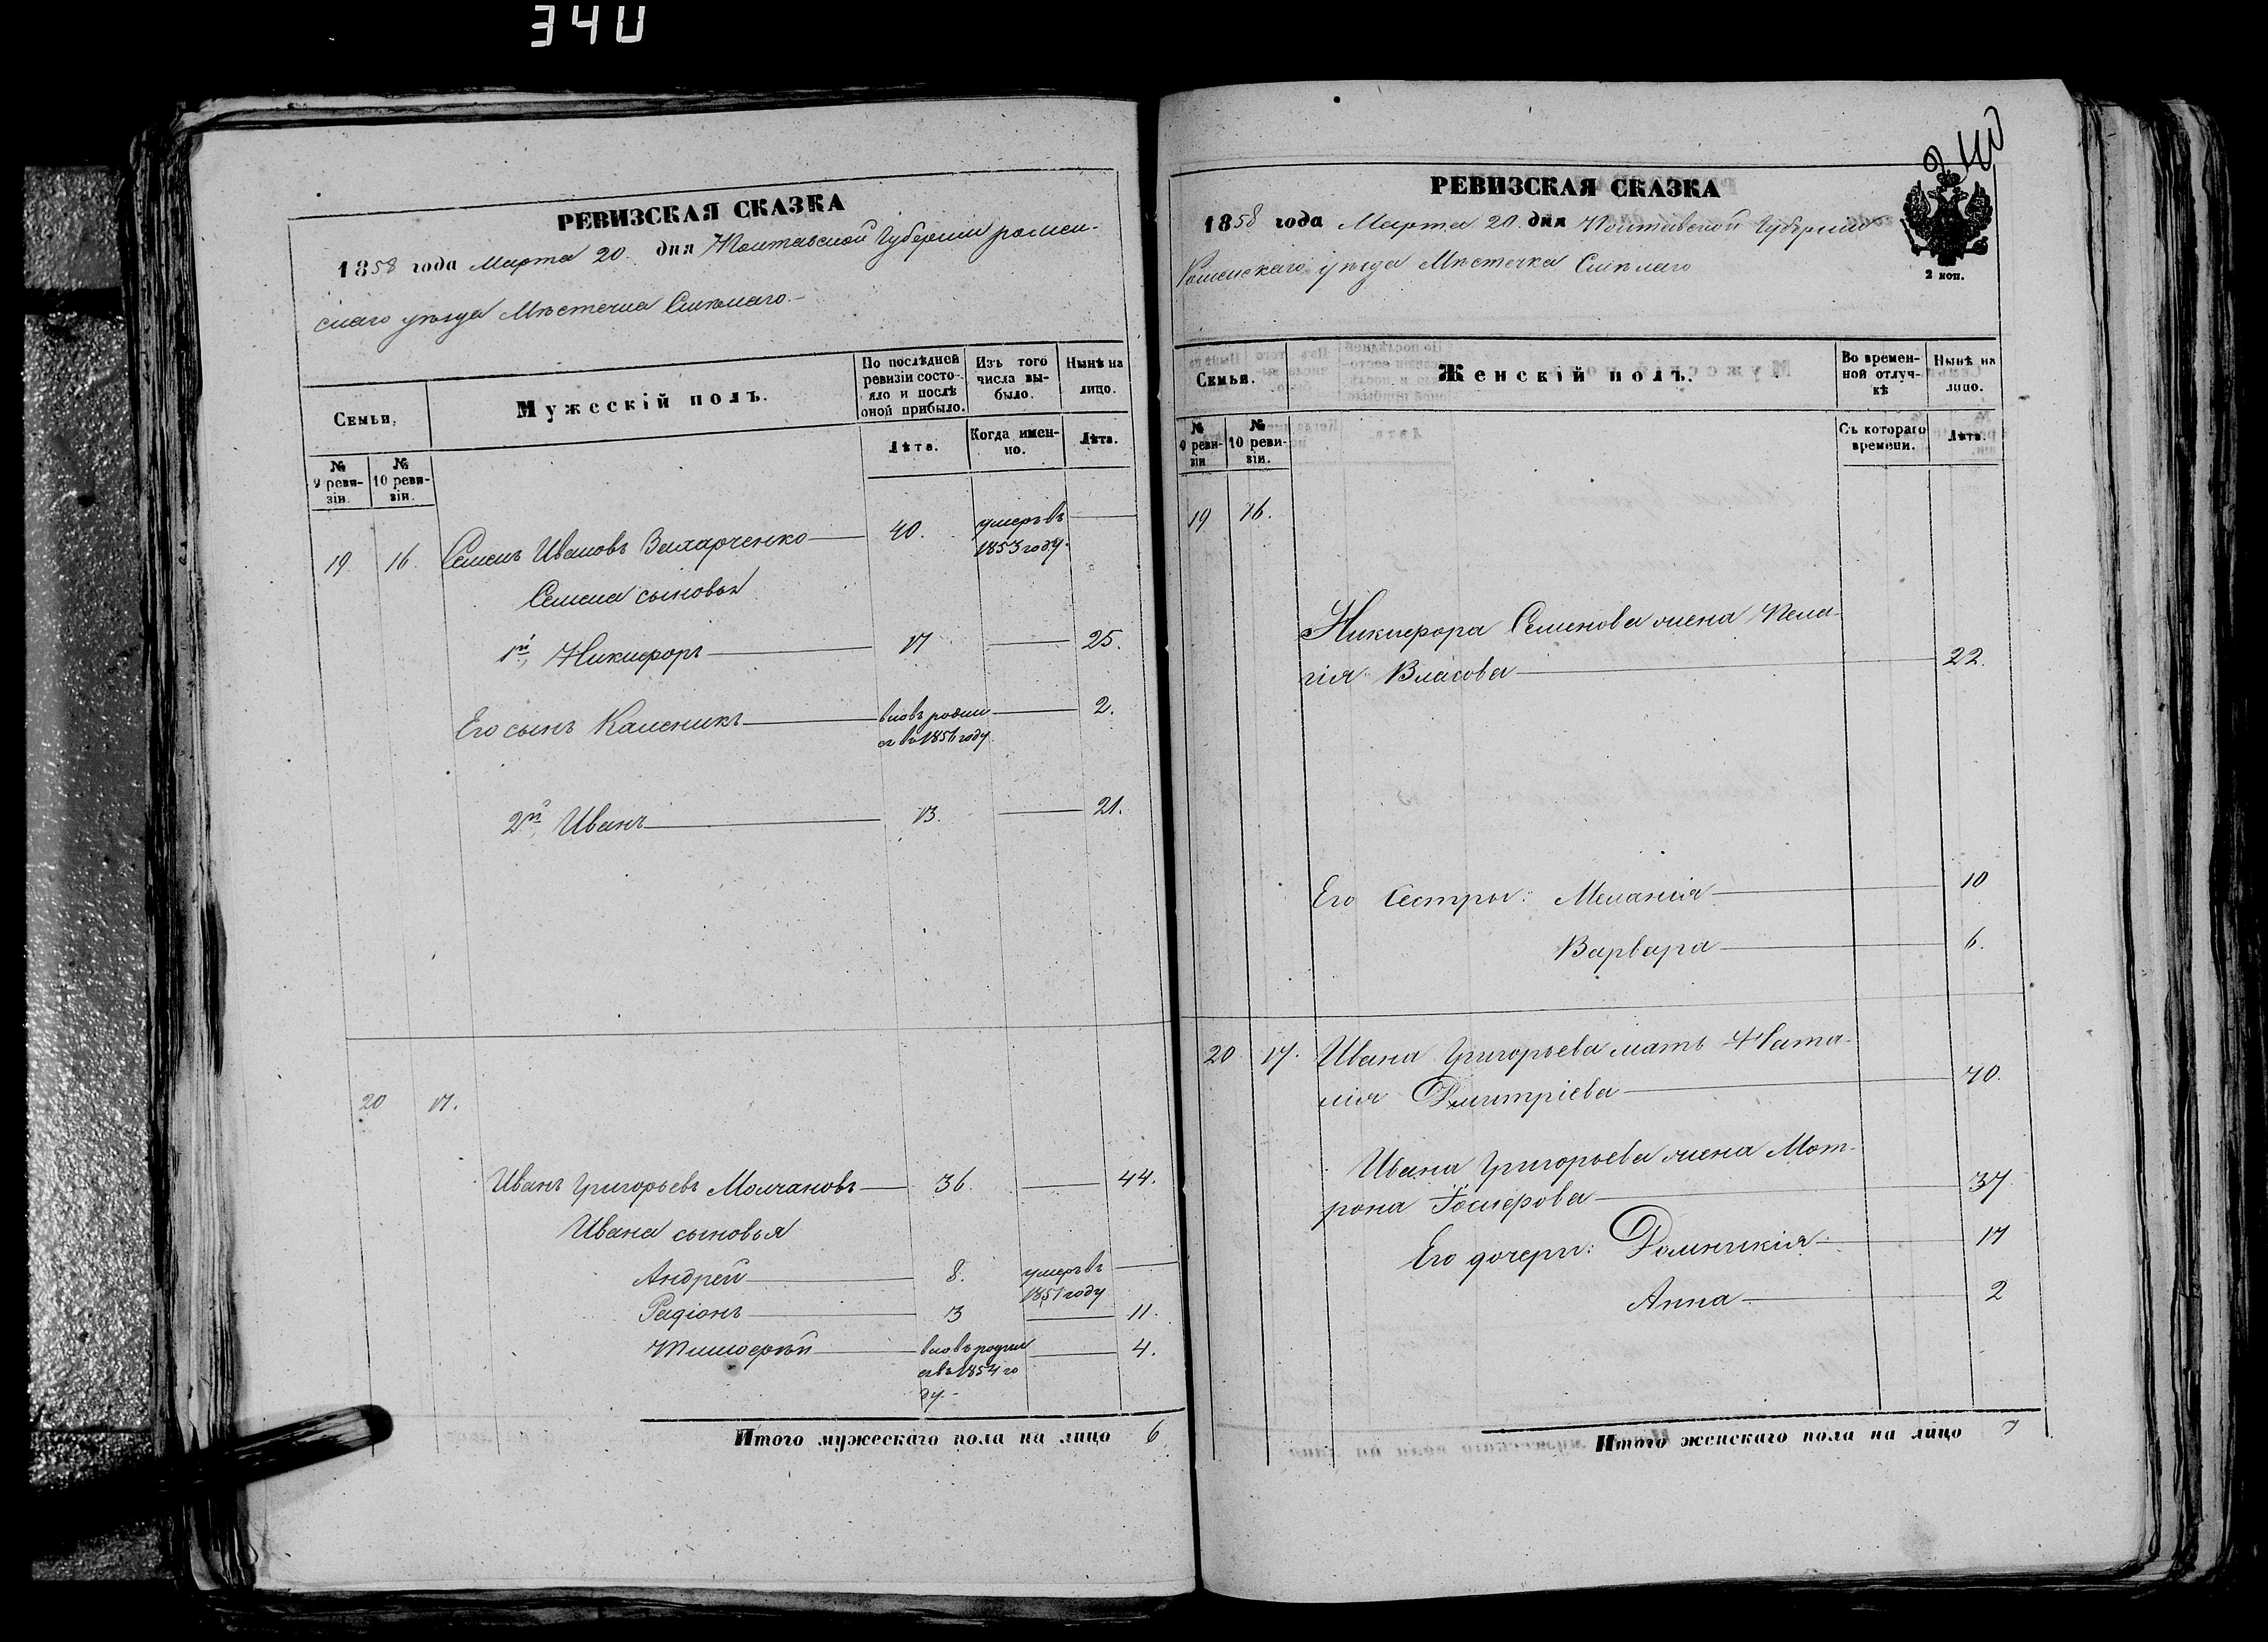 340
РЕВИЗСКАЯ СКАЗКА
1858 года Марта 20. дня Полтавской Губернии Ромен-
скаго уѣзда Мѣстечка Смѣлаго.-
Семьи,
Мужескій полъ.
По послѣдней ревизіи состо-
яло и послѣ
оной прибыло.
Изъ того
числа вы-
было.
Нынѣ на
лицо.
Лѣта.
Когда имен-
но.
Лѣта.
№
9 реви-
зіи.
№
10 реви-
зіи.
19 16. Семенъ Ивановъ Захарченко 40. умеръ въ
1853 году.
Семена сыновья
1й, Никифоръ 17 25.
Его сынъ Каленикъ вновь родил 2.
ся въ 1856 году
2й Иванъ 13. 21.
20 17.
Иванъ Григорьевъ Молчановъ 36. 44.
Ивана сыновья
Андрей 8. умеръ въ
1851 году
Радіонъ 3 11.
Тимофѣй вновь родил 4.
ся въ 1854 го
ду.-
Итого мужескаго пола на лицо 6
240
РЕВИЗСКАЯ СКАЗКА
1858 года Марта 20. дня Полтавской Губерніи
Роменскаго уѣзда Мѣстечка Смѣлаго
2 коп.
Семьи.
Женскій полъ.
Во времен-
ной отлуч-
кѣ
Нынѣ на
лицо.
№
9 реви-
зіи
№
10 реви-
зіи.
Съ котораго
времени.
Лѣта.
19 16.
Никифора Семенова жена Пела-
гія Власова 22.
Его Сестры: Меланія 10
Варвара 6.
20 17. Ивана Григорьева мать Ната-
лія Дмитріева 70.
Ивана Григорьева жена Мот-
рона Іосифова 37
Его дочери: Домникія 17
Анна 2
Итого женскаго пола на лицо 7